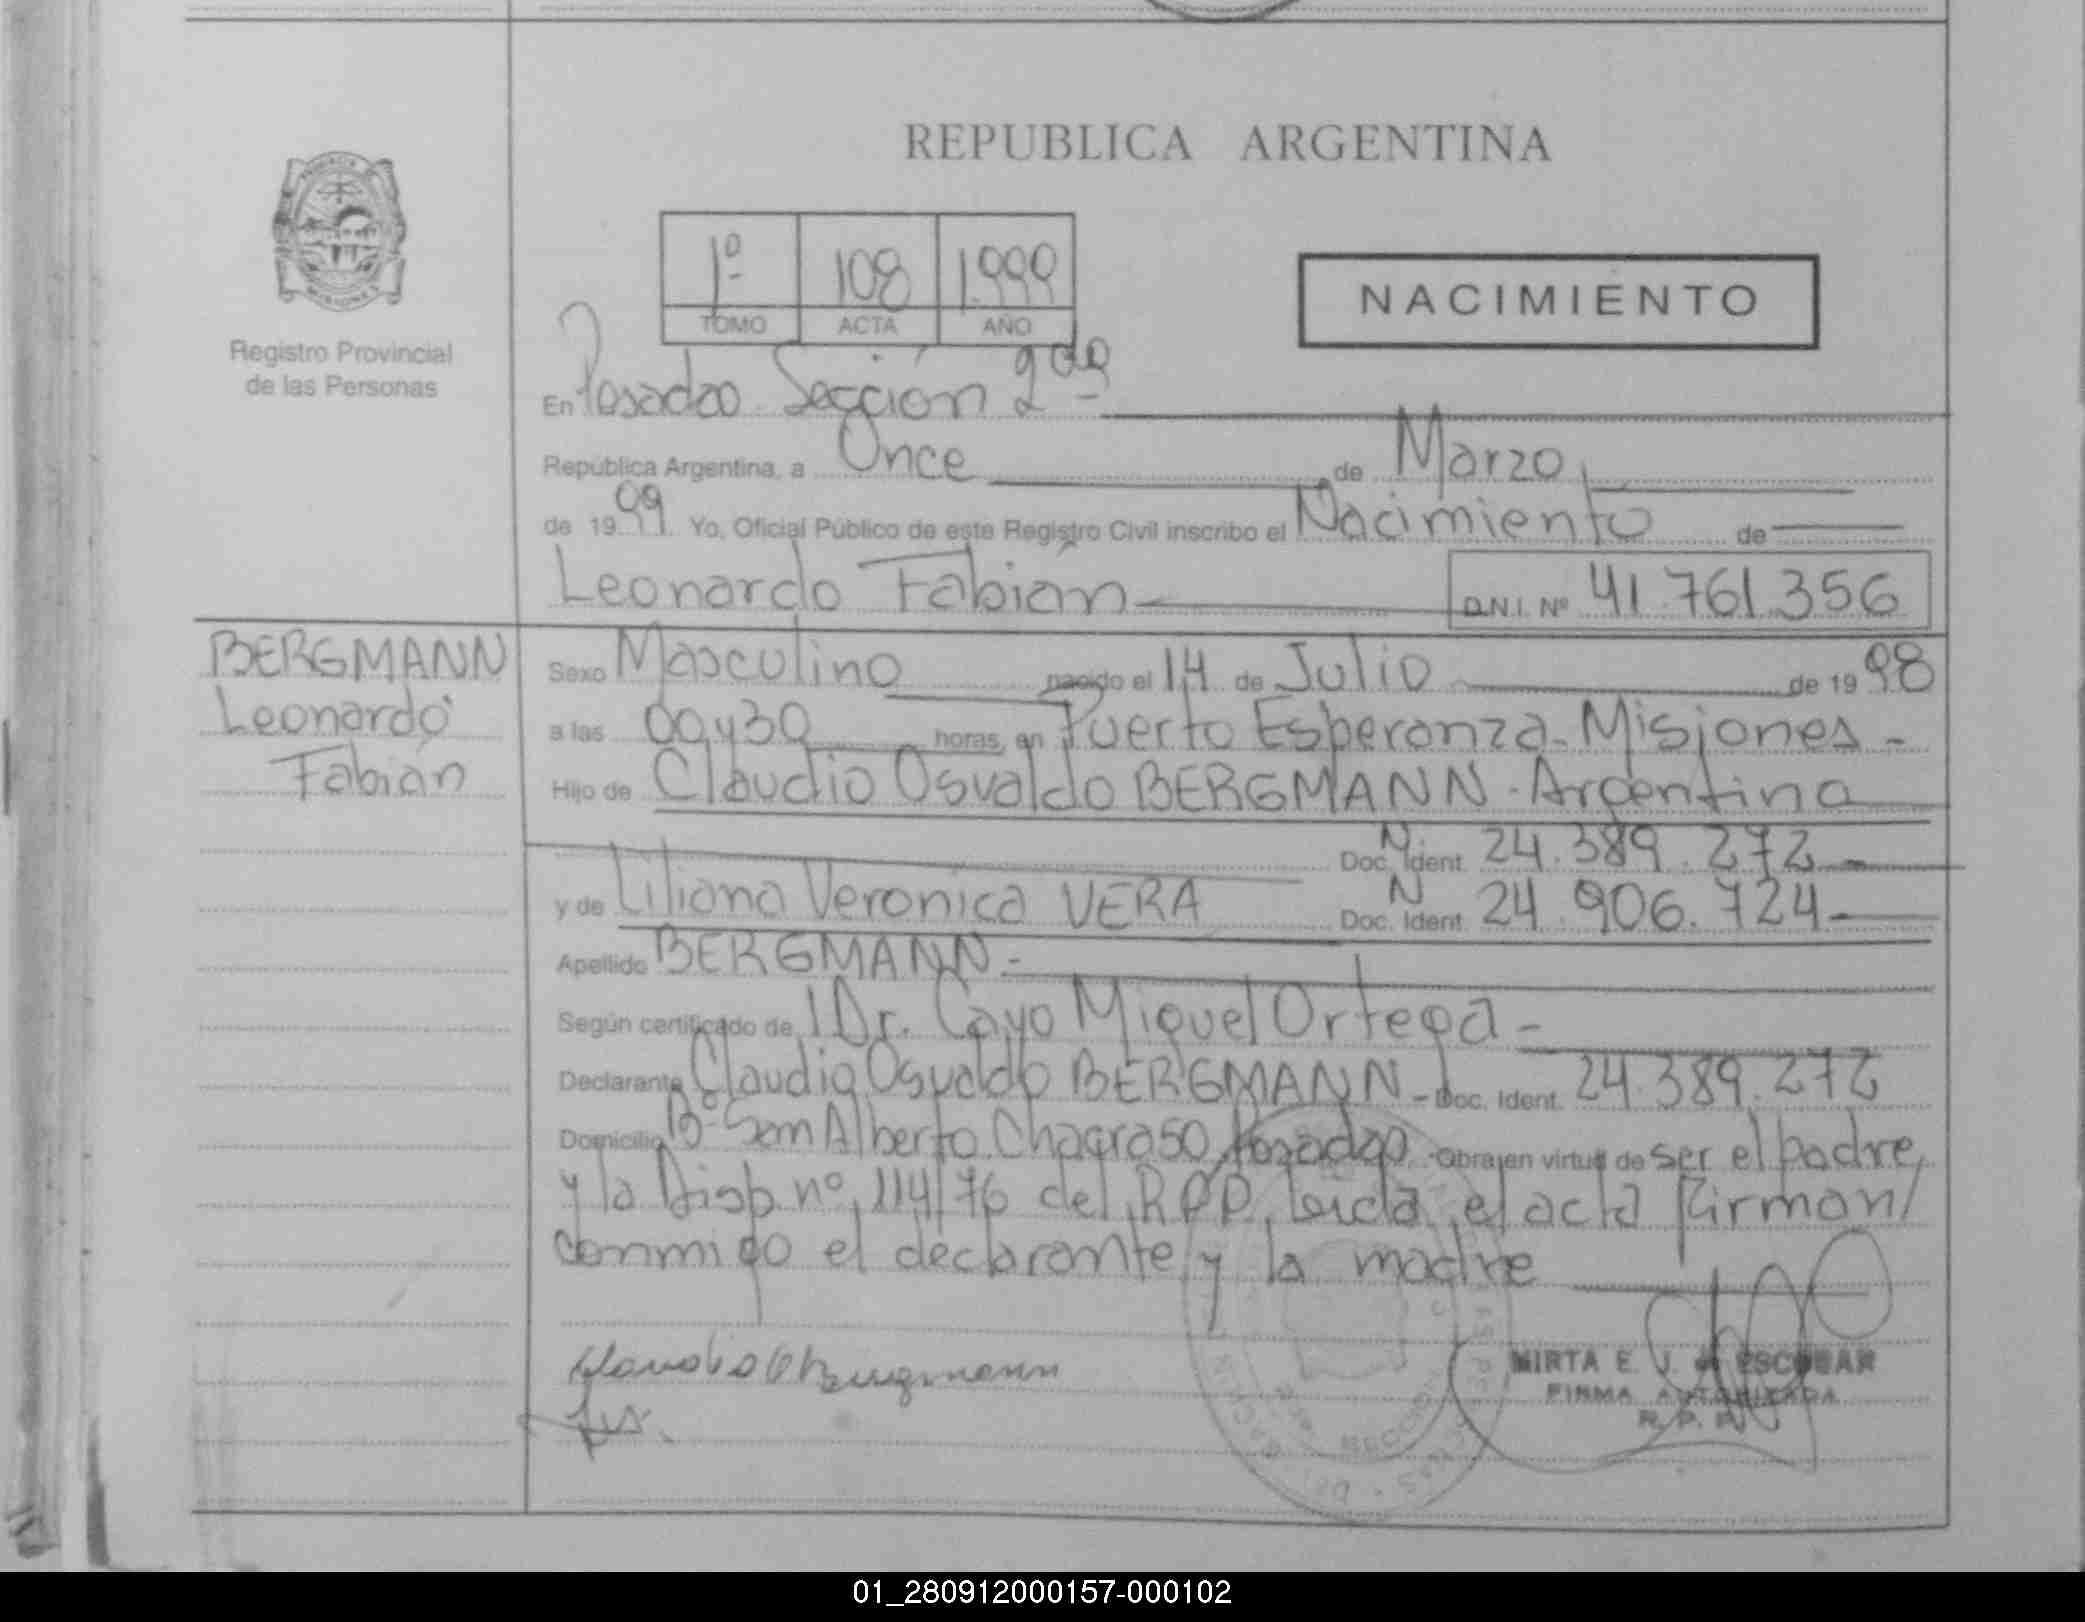 REPUBLICA ARGENTINA
1º 108 1.999
TOMO ACTA AÑO
NACIMIENTO
PROVINCIA
MISIONES
Registro Provincial
de las Personas
En Posadas Sección 2da
República Argentina, a Once de Marzo
de 1999 Yo, Oficial Público de este Registro Civil inscribo el Nacimiento de
Leonardo Fabián D.N.I. Nº 41.761.356
BERGMANN
Leonardo
Fabián
Sexo Masculino nacido el 14 de Julio de 1998
a las 00y30 horas, en Puerto Esperanza - Misiones -
Hijo de Claudio Osvaldo BERGMANN - Argentina
Doc. Ident. N 24.389.272
y de Liliana Veronica VERA Doc. Ident. N 24.906.724
Apellido BERGMANN -
Según certificado de Dr. Cayo Miguel Ortega -
Declarante Claudio Osvaldo BERGMANN - Doc. Ident. 24.389.272
Domicilio Bº San Alberto Posadas Obra en virtud de ser el padre
y la Disp. nº 114/76 del RPP, leida el acta firman/
conmigo el declarante y la madre
Claudio O Bergmann
MIRTA E. J. de ESCOBAR
FIRMA AUTORIZADA
R. P. P.
01_280912000157-000102